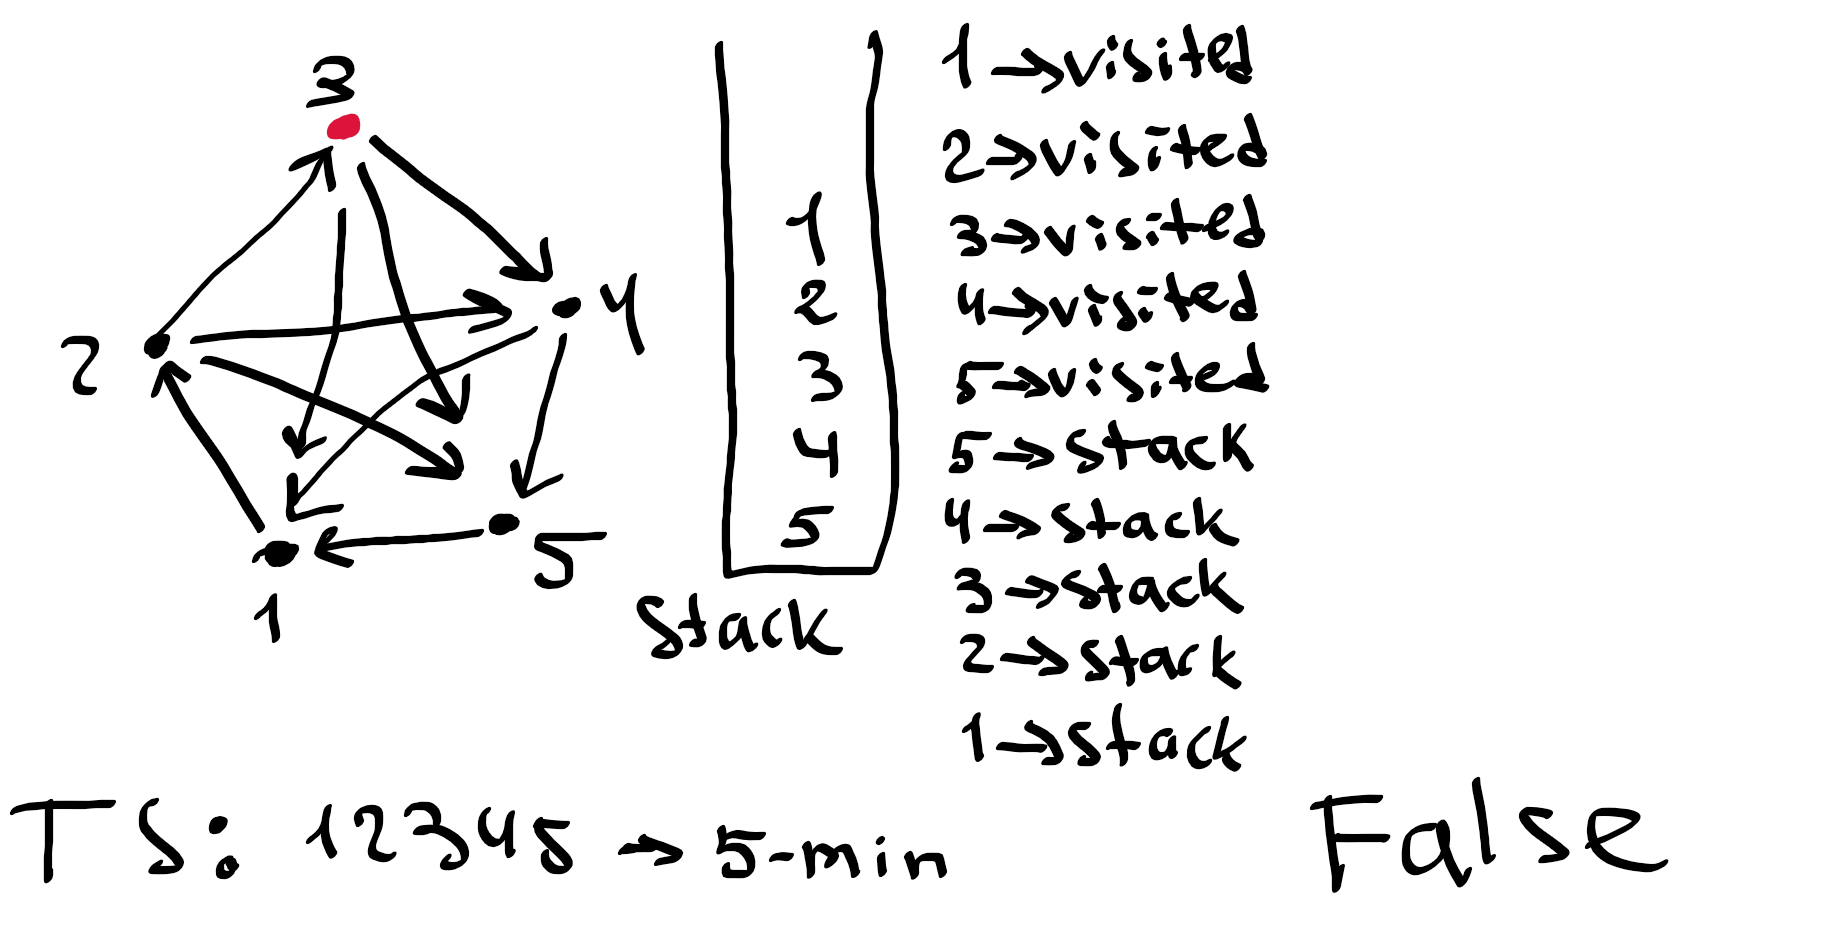 3
4
2
5
1
1
2
3
4
5
Stack
1→visited
2→visited
3→visited
4→visited
5→visited
5→stack
4→stack
3→stack
2→stack
1→stack
TS: 12345 → 5-min
False